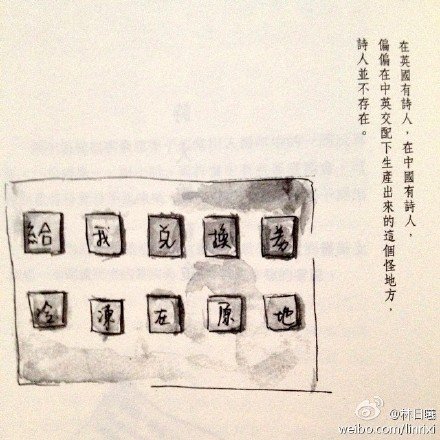 在英國有詩人，在中國有詩人，
偏偏在中英交配下生產出來的這個怪地方，
詩人並不存在。
給我兑換
冷凍在原地
@林日曦
weibo.com/linrixi